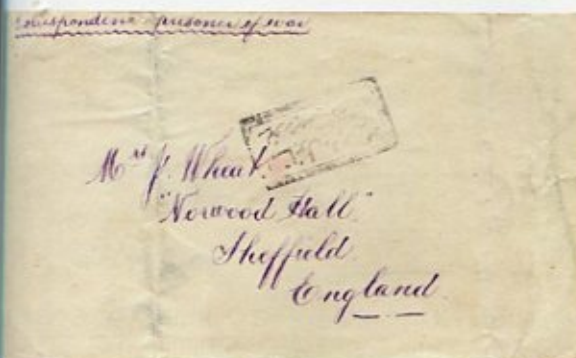 Correspondence prisoner of war
Mrs J. Wheat.
"Norwood Hall"
Sheffield.
England.